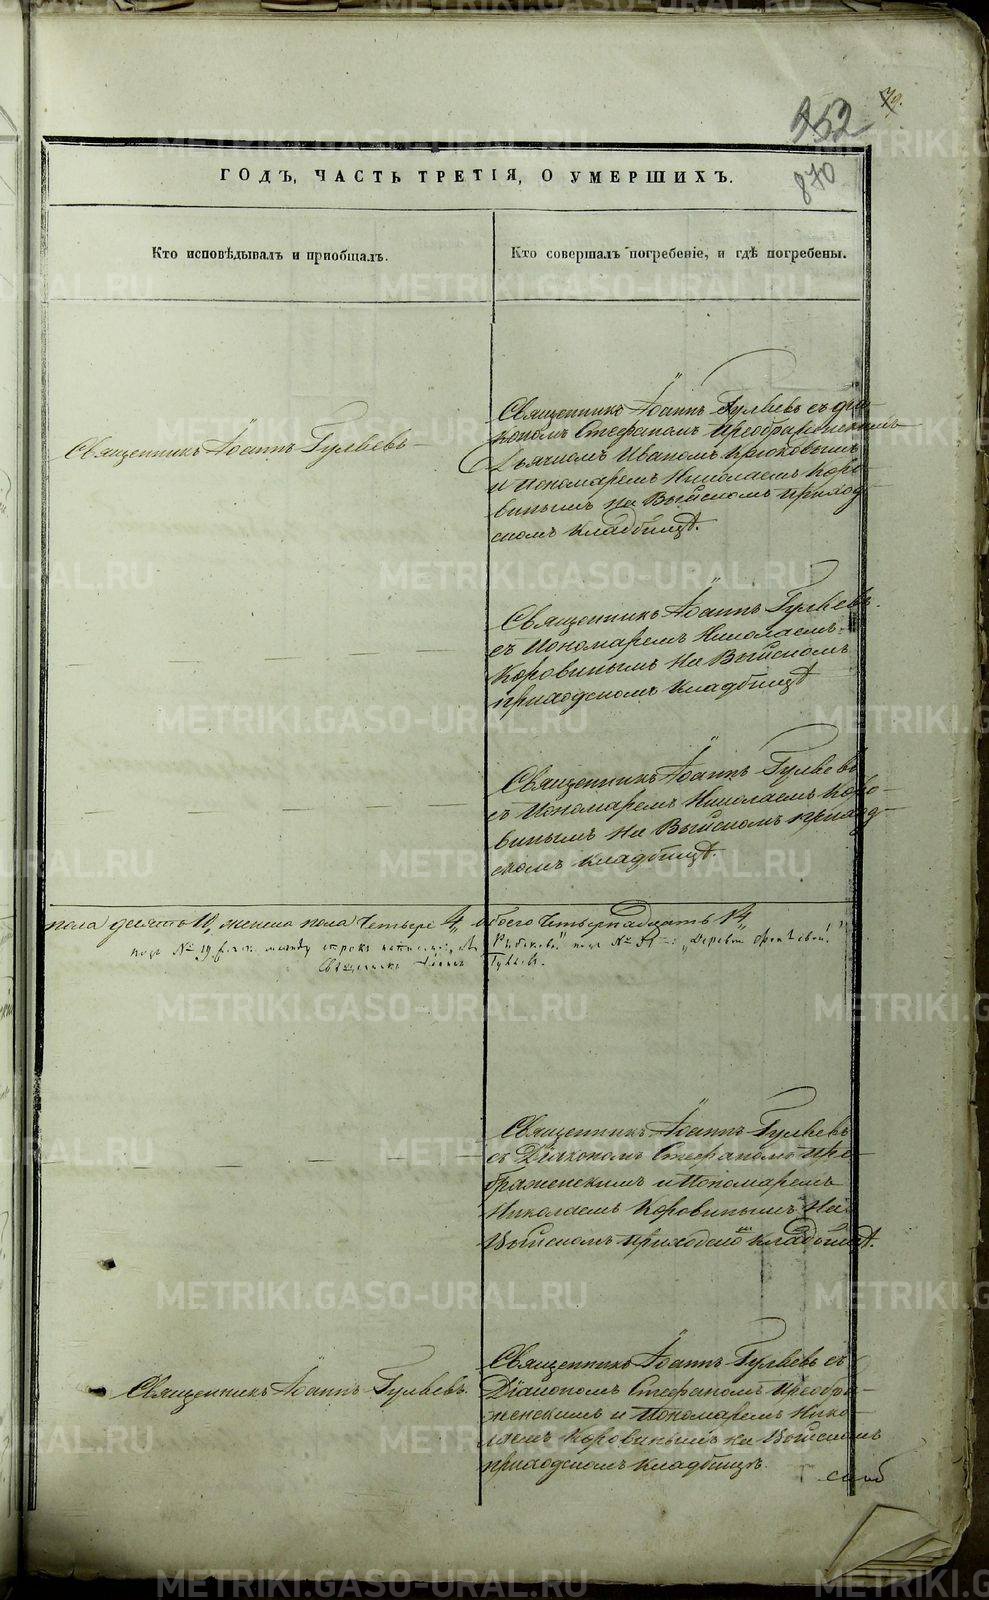 79.
852
870
ГОДЪ, ЧАСТЬ ТРЕТІЯ, О УМЕРШИХЪ.
Кто исповѣдывалъ и пріобщалъ.
Кто совершалъ погребеніе, и гдѣ погребены.
Священникъ Іоаннъ Гуляевъ
Священникъ Іоаннъ Гуляевъ съ діа-
кономъ Стефаномъ Преображенскимъ
Дьячкомъ Иваномъ Крюковымъ
и Пономаремъ Николаемъ Коро-
винымъ на Выйскомъ приход-
скомъ кладбищѣ.
Священникъ Іоаннъ Гуляевъ
съ Пономаремъ Николаемъ
Коровинымъ на Выйскомъ
приходскомъ кладбищѣ
Священникъ Іоаннъ Гуляевъ
съ Пономаремъ Николаемъ Коро-
винымъ на Выйскомъ приход-
скомъ кладбищѣ.
пола десять 10, женска пола четыре 4, а обоего четырнадцать 14,
подъ № 19 между строкъ написано:
Священникъ Іоаннъ Гуляевъ.
Священникъ Іоаннъ Гуляевъ
съ Діакономъ Стефаномъ Прео-
браженскимъ и Пономаремъ
Николаемъ Коровинымъ на
Выйскомъ приходском кладбищѣ.
Священникъ Іоаннъ Гуляевъ.
Священникъ Іоаннъ Гуляевъ съ
Діакономъ Стефаномъ Преобра-
женскимъ и Пономаремъ Нико-
лаемъ Коровинымъ на Выйскомъ
приходскомъ кладбищѣ.
METRIKI.GASO-URAL.RU